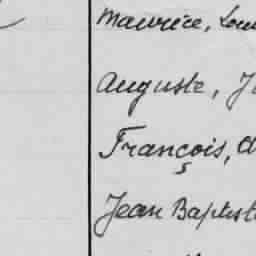 Maurice, Lou
Auguste, J
François, d
Jean Baptist